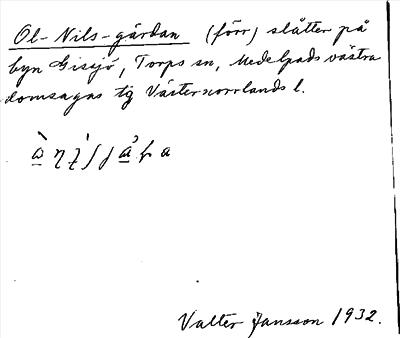 Ol-Nils-gårdan (förr) slåtter på
byn Gissjö, Torps sn, Medelpads västra
domsagas tg Västernorrlands l.
Valter Jansson 1932.